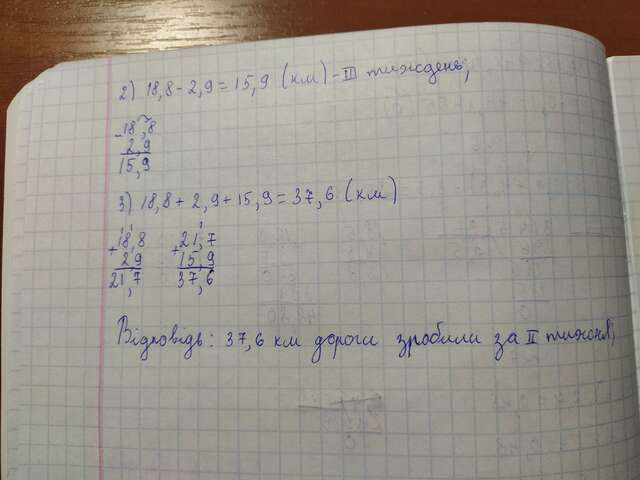 2) 18,8 - 2,9 = 15,9 (км) - III тиждень;
- 18,8
2,9
15,9
3) 18,8 + 2,9 + 15,9 = 37,6 (км)
+ 18,8
2,9
21,7
+ 21,7
15,9
37,6
Відповідь: 37,6 км дороги зробили за II тижні;